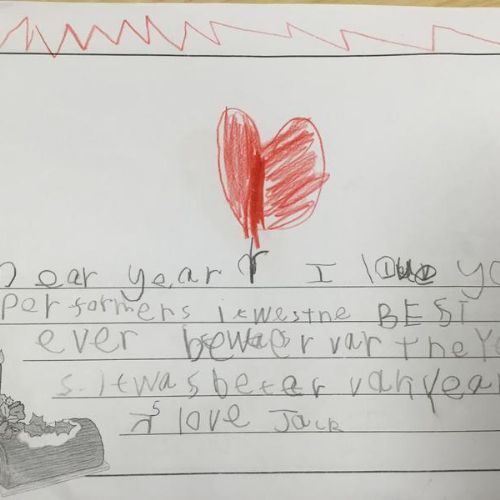 Dear year r I love yo
Performers it wes the BEST
ever var the Ye
s. It was beter van year
5 love Jack